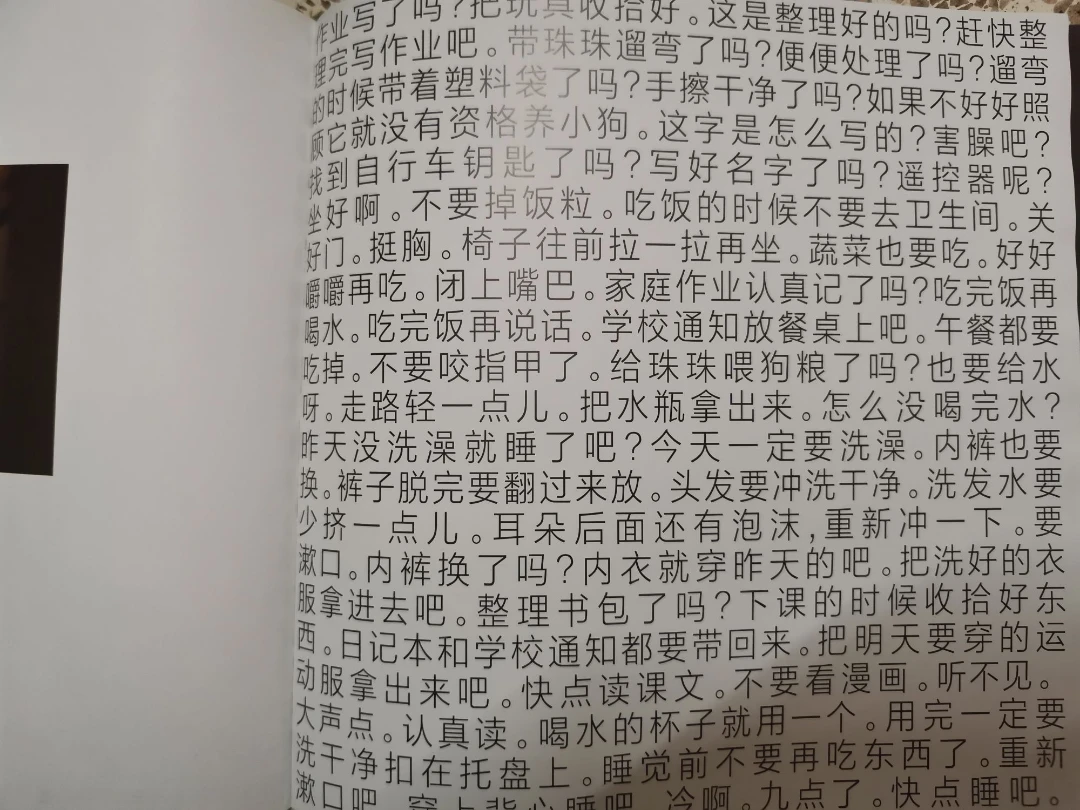 作业写了吗?把玩具收拾好。这是整理好的吗?赶快整
理完写作业吧。带珠珠遛弯了吗?便便处理了吗?遛弯
的时候带着塑料袋了吗?手擦干净了吗?如果不好好照
顾它就没有资格养小狗。这字是怎么写的?害臊吧?
找到自行车钥匙了吗?写好名字了吗?遥控器呢?
坐好啊。不要掉饭粒。吃饭的时候不要去卫生间。关
好门。挺胸。椅子往前拉一拉再坐。蔬菜也要吃。好好
嚼嚼再吃。闭上嘴巴。家庭作业认真记了吗?吃完饭再
喝水。吃完饭再说话。学校通知放餐桌上吧。午餐都要
吃掉。不要咬指甲了。给珠珠喂狗粮了吗?也要给水
呀。走路轻一点儿。把水瓶拿出来。怎么没喝完水?
昨天没洗澡就睡了吧?今天一定要洗澡。内裤也要
换。裤子脱完要翻过来放。头发要冲洗干净。洗发水要
少挤一点儿。耳朵后面还有泡沫,重新冲一下。要
漱口。内裤换了吗?内衣就穿昨天的吧。把洗好的衣
服拿进去吧。整理书包了吗?下课的时候收拾好东
西。日记本和学校通知都要带回来。把明天要穿的运
动服拿出来吧。快点读课文。不要看漫画。听不见。
大声点。认真读。喝水的杯子就用一个。用完一定要
洗干净扣在托盘上。睡觉前不要再吃东西了。重新
漱口吧。穿上背心睡吧。冷啊。九点了。快点睡吧。